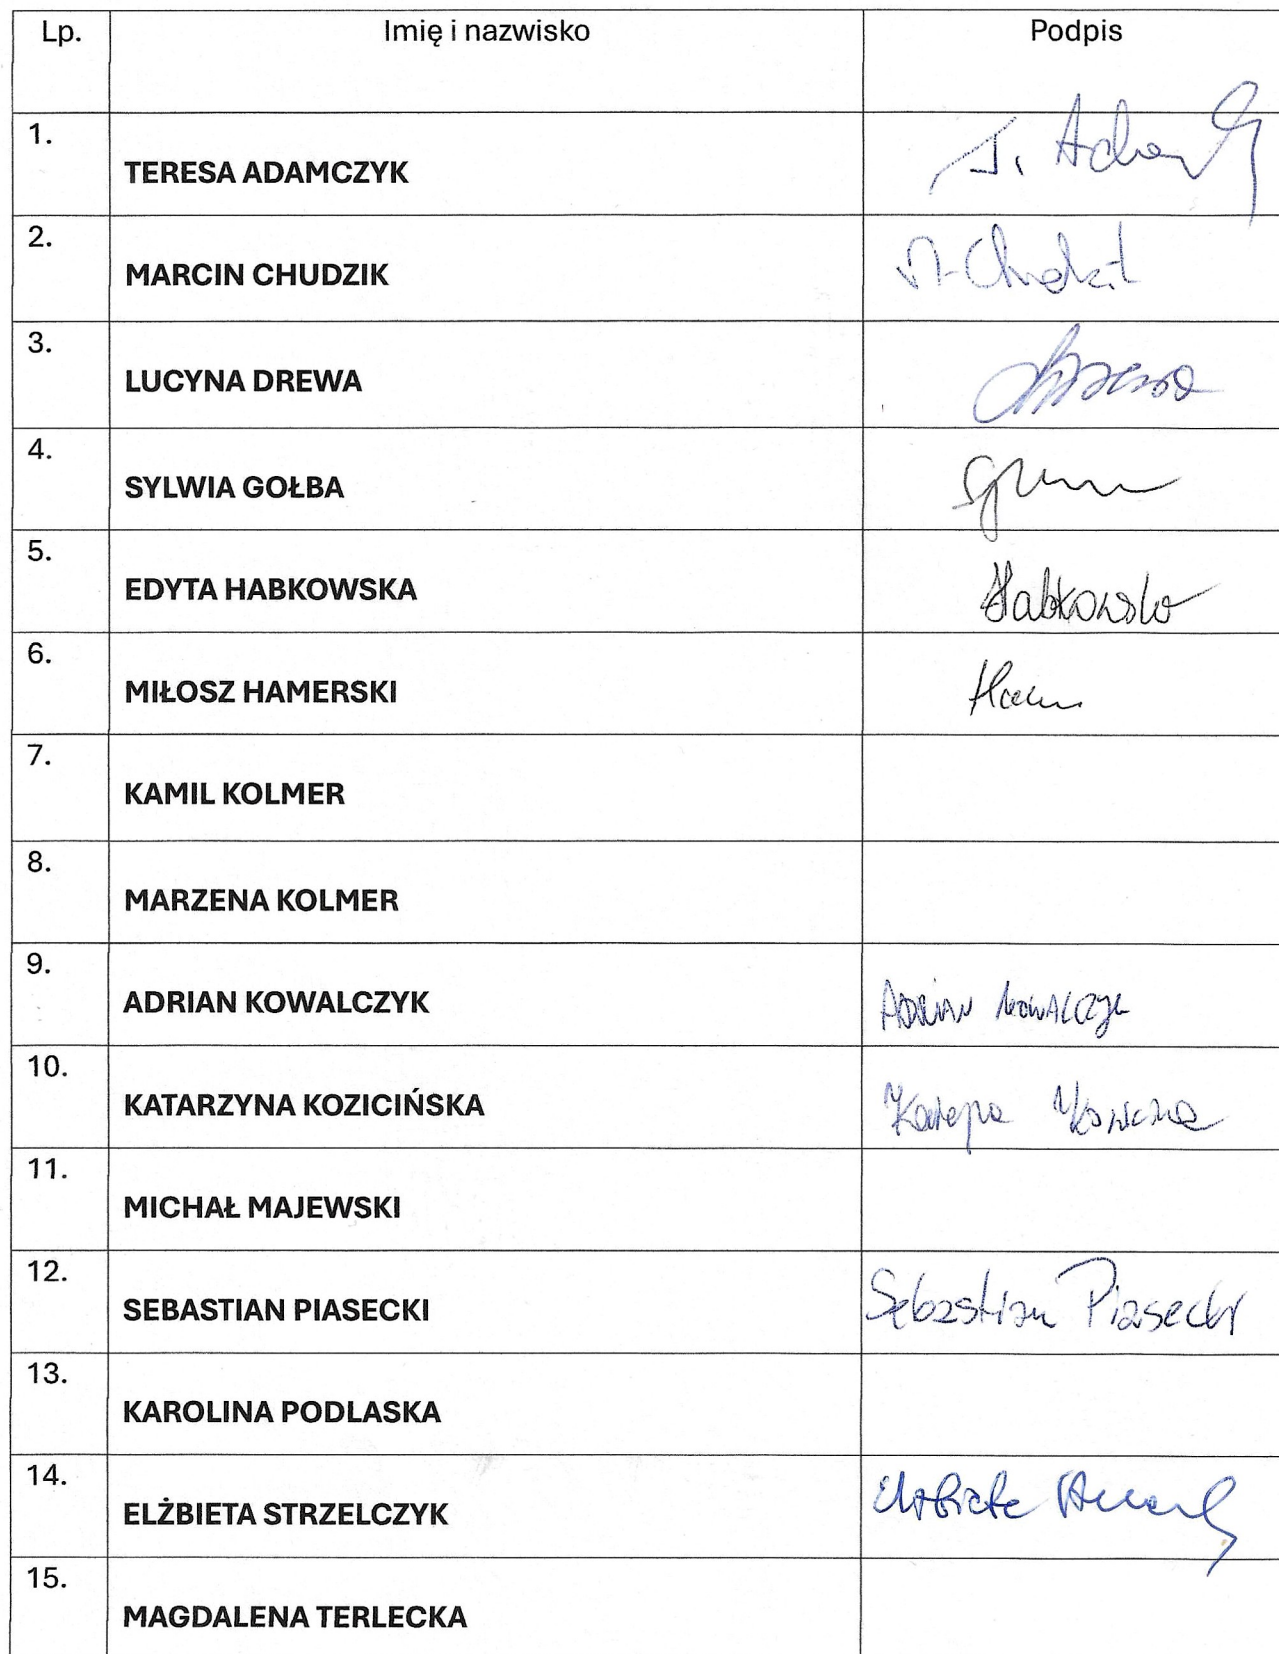 Lp. Imię i nazwisko Podpis
1. TERESA ADAMCZYK
2. MARCIN CHUDZIK M. Chudzik
3. LUCYNA DREWA
4. SYLWIA GOŁBA
5. EDYTA HABKOWSKA Habkowska
6. MIŁOSZ HAMERSKI
7. KAMIL KOLMER
8. MARZENA KOLMER
9. ADRIAN KOWALCZYK ADRIAN KOWALCZYK
10. KATARZYNA KOZICIŃSKA
11. MICHAŁ MAJEWSKI
12. SEBASTIAN PIASECKI Sebastian Piasecki
13. KAROLINA PODLASKA
14. ELŻBIETA STRZELCZYK Elżbieta
15. MAGDALENA TERLECKA